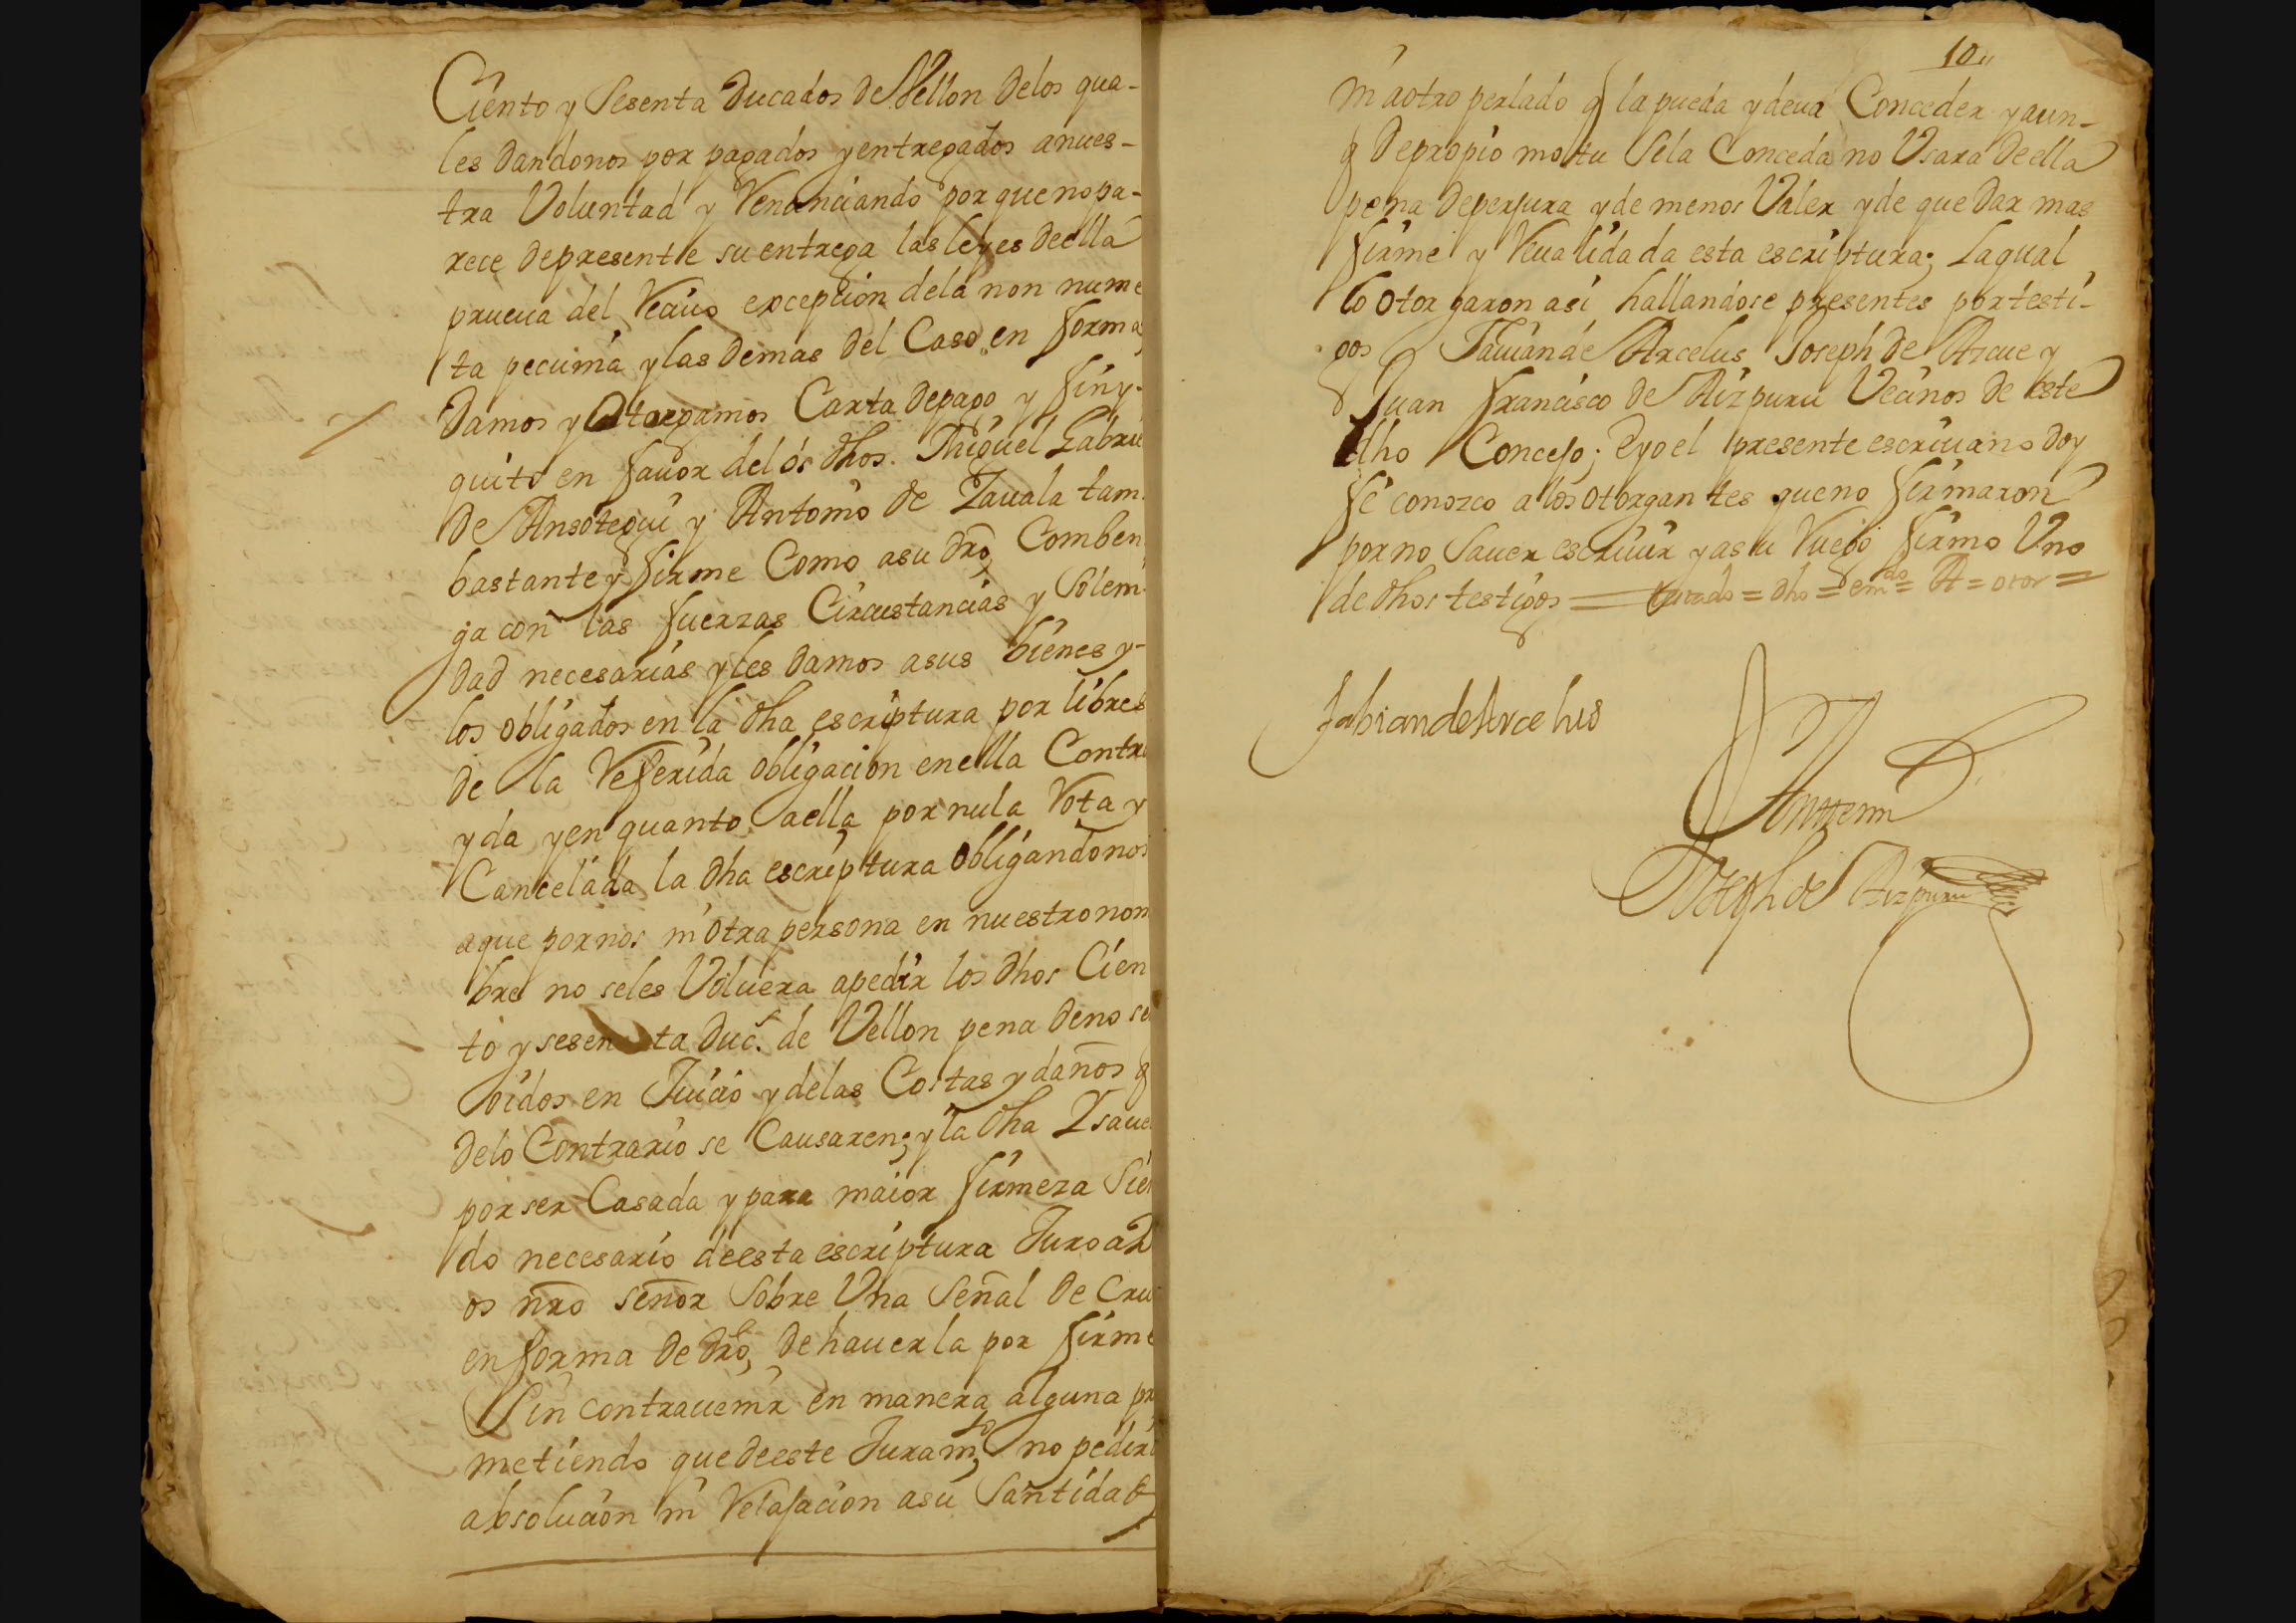 Ciento y Sesenta Ducados de Vellon delos qua-
les dandonos por pagados y entregados anues-
tra Voluntad y Renunciando por que no pa-
rece depresente su entrega las leyes deella
prueua del Reciuo excepcion dela non nume
ta pecunia y las demas del Caso en forma
Damos y Otorgamos Carta depago y finy-
quito en fauor delos dhos. Miguel Gabrie
de Ansotegui y Antonio de Zauala tam
bastante y firme Como asu dro, Comben
ga con las fuerzas Circustancias y Solem
dad necesarias y les damos asus bienes y-
los obligados en la dha escriptura por libres
de la Referida obligacion enella Contra
yda y en quanto aella por nula Rota y
Cancelada la dha escriptura obligandonos
aque por nos ni otra persona en nuestro nom
bre no seles Voluera apedir los dhos Cien
to y sesenta Duc.s de Vellon pena de no se
oidos en Juicio y delas Costas y daños q
delo Contrario se Causaren; y la dha Ysaue
por ser Casada y para maior firmeza Sien
do necesario deesta escriptura Juro a D
os nro señor Sobre Una Señal de Cru
en forma de dro, de hauerla por firme
Sin contrauenir en manera alguna pr
metiendo que deeste Juram.to no pedira
absolucion ni Relajacion asu Santidad
10
ni aotro perlado q la pueda y deua Conceder y aun-
q de propio motu Sela Conceda no Usara de ella
pena deperjura y de menos Valer y de quedar mas
firme y Reualidada esta escriptura; La qual
lo otorgaron asi hallandose presentes por testi-
gos Fauian de Arcelus Joseph de Azcue y
Juan francisco de Aizpuru Vecinos de este
dho Concejo; e yo el presente escriuano doy
fe conozco a los otorgantes que no firmaron
por no Sauer escriuir y asu Ruego firmo Uno
de dhos testigos = = dho = em.do = A = otor =
Fabian de Arcelus
Antemi
Joseph de Aizpuru